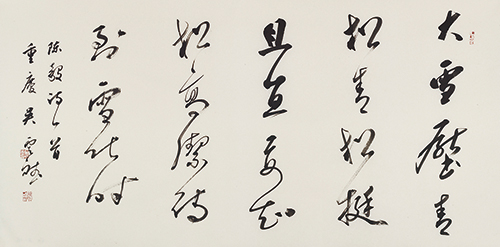 大雪壓青
松青松挺
且直要知
松高潔待
到雪化时
陈毅诗一首
重慶吴